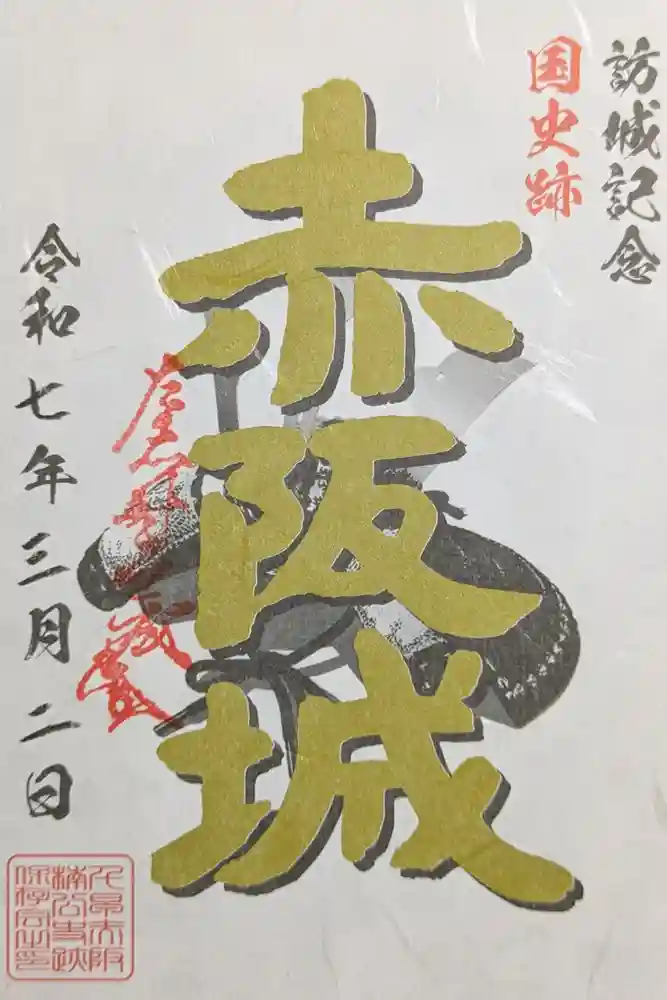 訪城記念
国史跡
赤阪城
令和七年三月二日